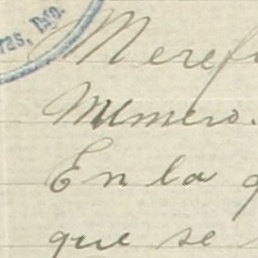 ras, D
Meref
Numero.
En la q
que se